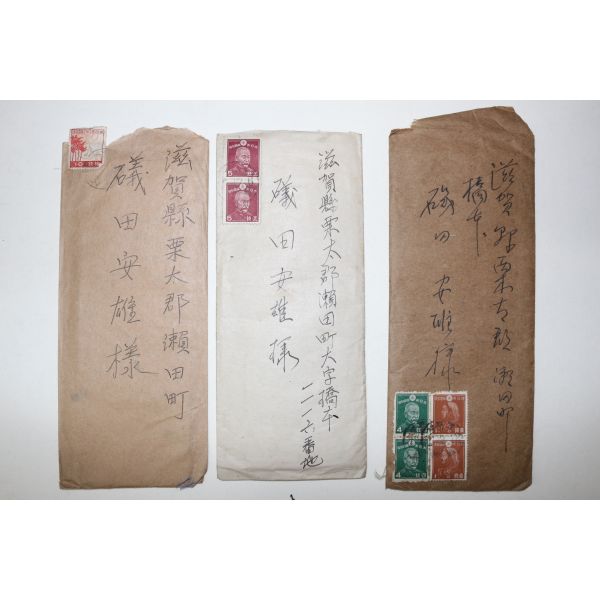 滋賀縣栗太郡瀬田町
礒田安雄様
10
滋賀縣栗太郡瀬田町大字橋本
一二一六番地
礒田安雄様
5
5
滋賀縣栗太郡瀬田町
橋本
礒田安雄様
4
4